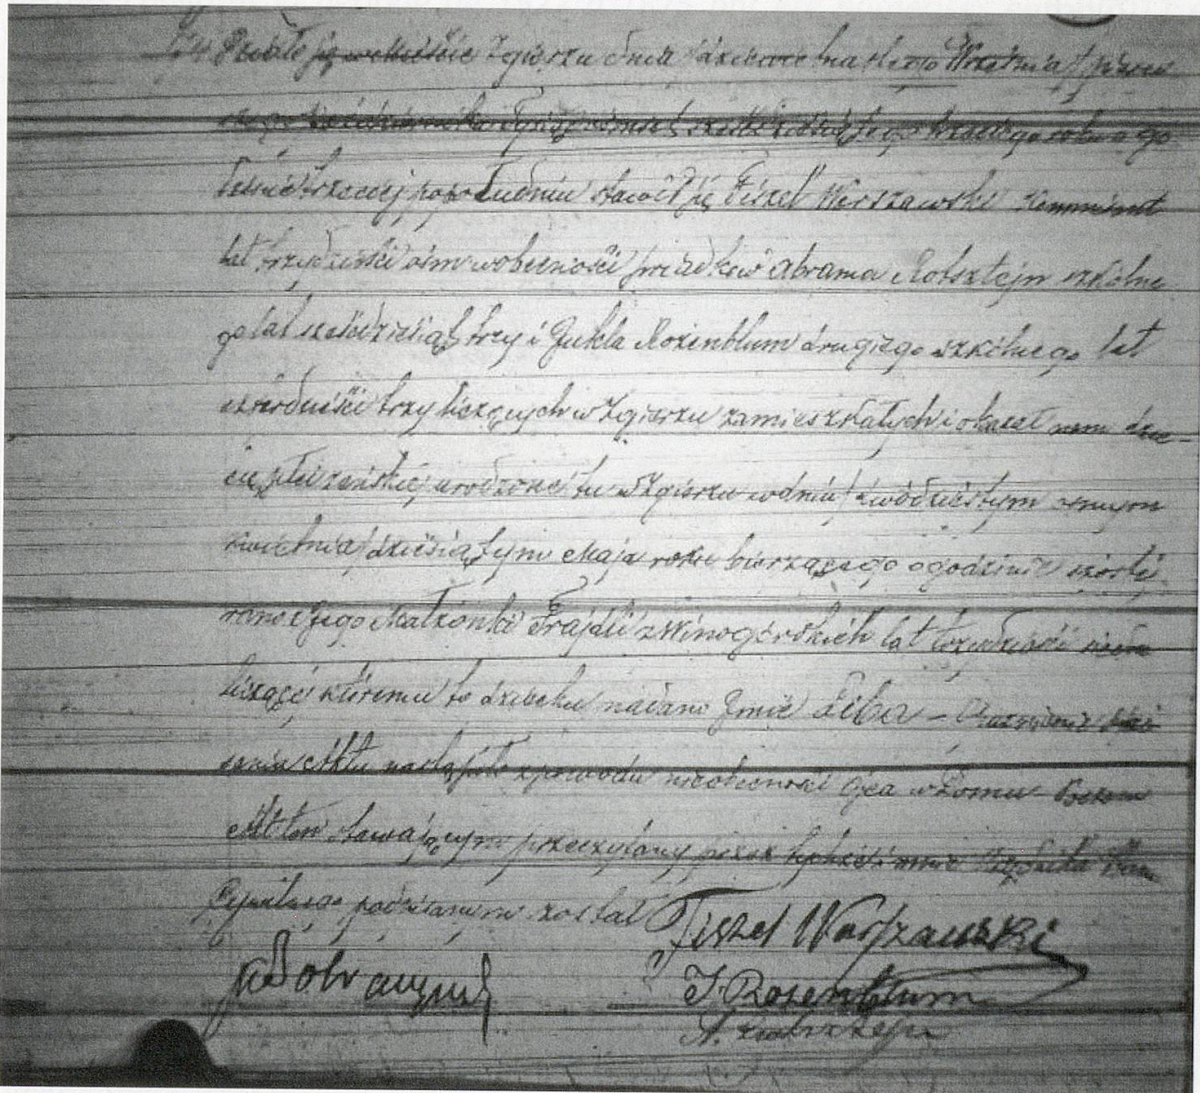 Działo się w Mieście Zgierzu dnia dziewietnastego Września / pierw
Tysiąc ośmset sześćdziesiątego trzeciego roku o go
dzinie trzeciej popołudniu stawił się Fiszel Warszawski
lat trzydzieści ośm w obecności świadków Abrama Rotsztejn szkolne
go lat sześćdziesiąt trzy i Jukla Rozenblum drugiego szkolnego lat
czterdzieści trzy liczących w Zgierzu zamieszkałych i okazał nam dzie-
cię płci żeńskiej urodzone tu w Zgierzu w dniu / dwódziestym osmym
Kwietnia / dziesiątym Maja roku bierzącego o godzinie szostej
rano z Jego Małżonki Frajdli z Winogórskich lat trzydzieści
liczącej któremu to dziecku nadano Jmie Liba –
Aktu nastąpiło z powodu nieobecności Ojca w Domu Poczem
Akt ten stawającym przeczytany przez tychże i mnie Urzędnika Stanu
Cywilnego podpisanym został Fiszel Warszawski
J. Rosenblum